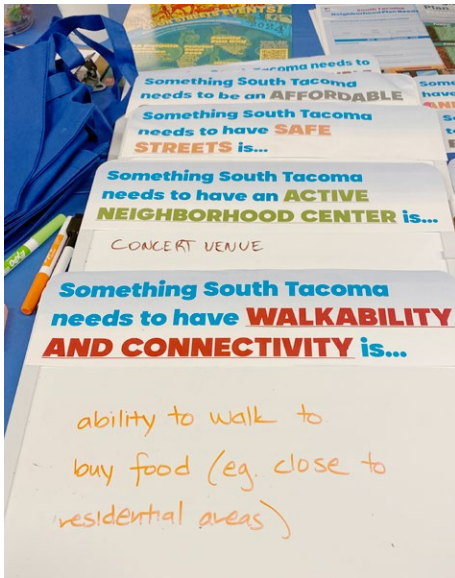 STREETS EVENTS!
South Tacoma
Neighborhood Plan
Plan
South Tacoma needs to
Something South Tacoma
needs to be an AFFORDABLE
Something South Tacoma
needs to have SAFE
STREETS is...
Something South Tacoma
needs to have an ACTIVE
NEIGHBORHOOD CENTER is...
CONCERT VENUE
Something South Tacoma
needs to have WALKABILITY
AND CONNECTIVITY is...
ability to walk to
buy food (eg. close to
residential areas)